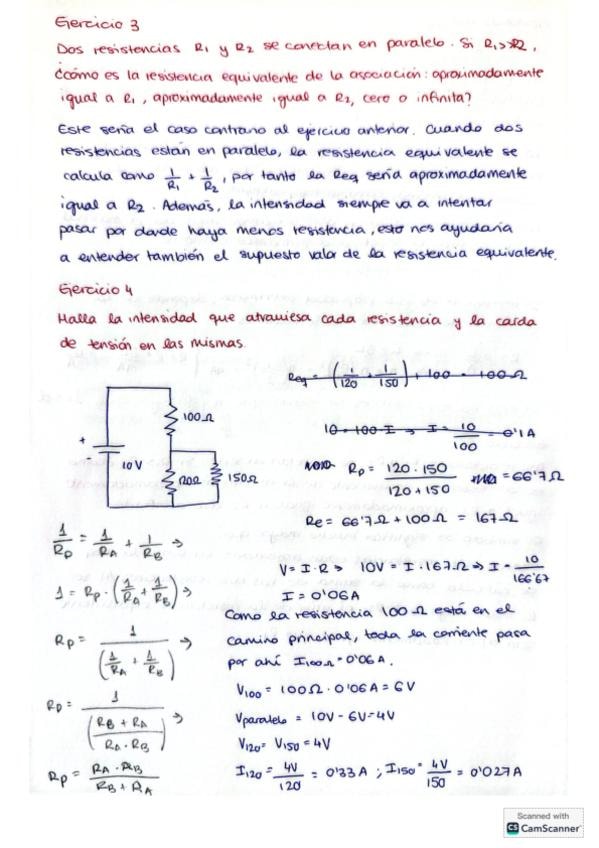 Ejercicio 3
Dos resistencias R₁ y R₂ se conectan en paralelo. Si R₁>>R2,
¿cómo es la resistencia equivalente de la asociación: aproximadamente
igual a R₁, aproximadamente igual a R₂, cero o infinita?
Este sería el caso contrario al ejercicio anterior. Cuando dos
resistencias están en paralelo, la resistencia equivalente se
calcula como 1/R₁ + 1/R₂, por tanto la Req sería aproximadamente
igual a R₂. Además, la intensidad siempre va a intentar
pasar por donde haya menos resistencia, esto nos ayudaría
a entender también el supuesto valor de la resistencia equivalente.
Ejercicio 4
Halla la intensidad que atraviesa cada resistencia y la caída
de tensión en las mismas.
+
-
10V
100Ω
150Ω
Req = (1/120 + 1/150) + 100 = 100Ω
10 = 100·I → I = 10/100 = 0'1A
Rp = 120·150 / 120+150 = 66'7Ω
Re = 66'7Ω + 100Ω = 167Ω
V = I·R → 10V = I·167Ω → I = 10/166'67
I = 0'06A
Como la resistencia 100Ω está en el
camino principal, toda la corriente pasa
por ahí I₁₀₀Ω = 0'06A.
V₁₀₀ = 100Ω·0'06A = 6V
Vparalelo = 10V - 6V = 4V
V₁₂₀ = V₁₅₀ = 4V
I₁₂₀ = 4V/120 = 0'33A ; I₁₅₀ = 4V/150 = 0'027A
1/Rp = 1/RA + 1/RB →
1 = Rp·(1/RA + 1/RB) →
Rp = 1/(1/RA + 1/RB) →
Rp = 1/((RB + RA)/(RA·RB)) →
Rp = RA·RB / RB + RA
Scanned with
CS CamScanner